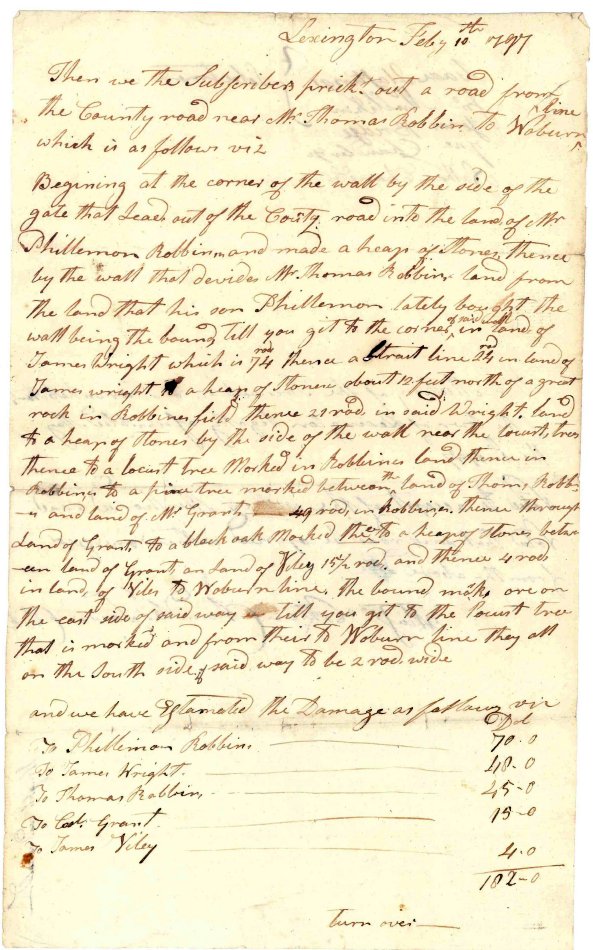 Lexington Feby 10th 1797
Then we the Subscribers prickt out a road from
the County road near Mr Thomas Robbins to Woburn line
which is as follows viz
Begining at the corner of the wall by the side of the
gate that Leads out of the County road into the land of Mr
Phillemon Robbins and made a heap of Stones thence
by the wall that devides Mr Thomas Robbins land from
the land that his son Phillemon lately bought the
wall being the bound till you get to the corner of said wall in land of
James Wright which is 74 rod thence a Strait line 24 rd in land of
James wright to a heap of Stones about 12 feet north of a great
rock in Robbins field thence 21 rod in said Wright land
to a heap of stones by the side of the wall near the locust trees
thence to a locust tree Marked in Robbines land thence in
Robbins to a pine tree marked between the land of Thoms Robbin
s and land of Mr Grant 49 rods in Robbins thence through
Land of Grants to a black oak Marked thence to a heap of stones betw
een land of Grant and land of Viley 15 1/2 rod and thence 4 rods
in land of Viles to Woburn line the bound marks are on
the east side of said way till you get to the Locust tree
that is marked and from their to Woburn line they all
on the South side of said way to be 2 rods wide
and we have Estamated the Damage as follows viz
D. d
To Phillimon Robbins 70-0
To James Wright 48-0
To Thomas Robbins 45-0
To Col. Grant 15-0
To James Viley 4-0
182-0
turn over